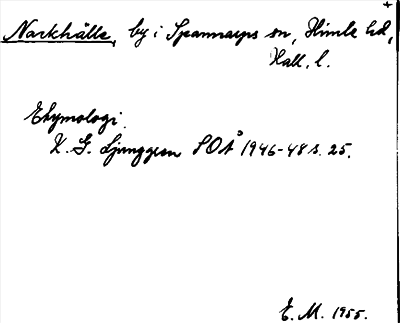 +
Narkhälle, by i Spannarps sn, Himle hd,
Hall. l.
Etymologi.
K. G. Ljunggren SOÅ 1946-48 s. 25.
E. M. 1955.